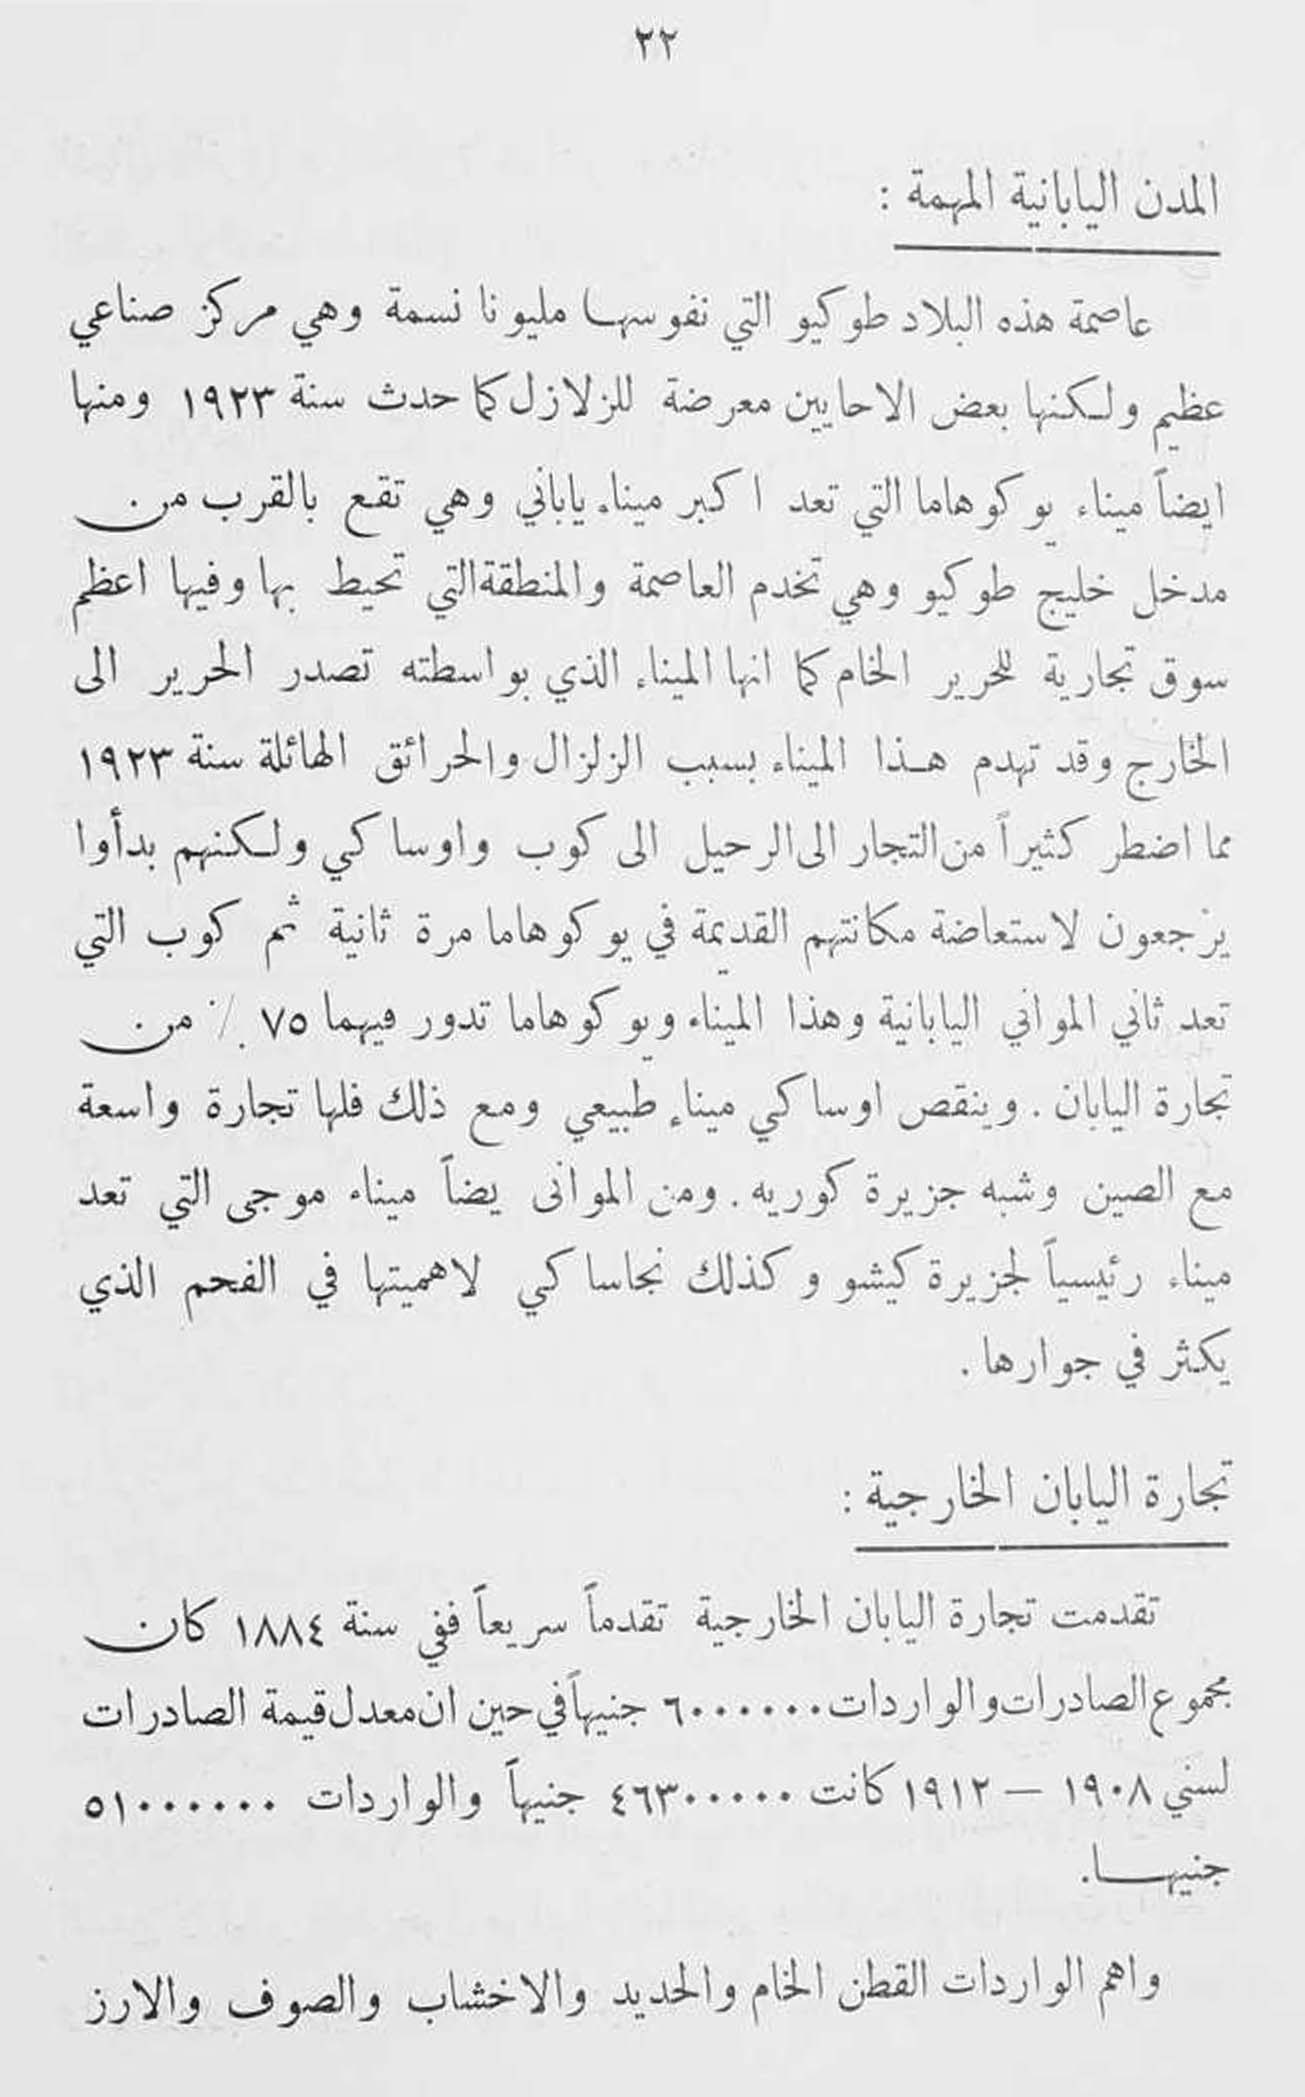 ٢٢
المدن اليابانية المهمة :
عاصمة هذه البلاد طوكيو التي نفوسها مليونا نسمة وهي مركز صناعي
عظيم ولكنها بعض الاحايين معرضة للزلازل كما حدث سنة ١٩٢٣ ومنها
ايضاً ميناء يوكوهاما التي تعد اكبر ميناء ياباني وهي تقع بالقرب من
مدخل خليج طوكيو وهي تخدم العاصمة والمنطقة التي تحيط بها وفيها اعظم
سوق تجارية للحرير الخام كما انها الميناء الذي بواسطته تصدر الحرير الى
الخارج وقد تهدم هذا الميناء بسبب الزلزال والحرائق الهائلة سنة ١٩٢٣
مما اضطر كثيراً من التجار الى الرحيل الى كوب واوساكي ولكنهم بدأوا
يرجعون لاستعاضة مكانتهم القديمة في يوكوهاما مرة ثانية ثم كوب التي
تعد ثاني المواني اليابانية وهذا الميناء ويوكوهاما تدور فيهما ٧٥ ٪ من
تجارة اليابان . وينقص اوساكي ميناء طبيعي ومع ذلك فلها تجارة واسعة
مع الصين وشبه جزيرة كوريه . ومن الموانى يضاً ميناء موجى التي تعد
ميناء رئيسياً لجزيرة كيشو وكذلك نجاساكي لاهميتها في الفحم الذي
يكثر في جوارها .
تجارة اليابان الخارجية :
تقدمت تجارة اليابان الخارجية تقدماً سريعاً ففي سنة ١٨٨٤ كان
مجموع الصادرات والواردات ٦٠٠٠٠٠٠ جنيهاً في حين ان معدل قيمة الصادرات
لسني ١٩٠٨ — ١٩١٢ كانت ٤٦٣٠٠٠٠٠ جنيهاً والواردات ٥١٠٠٠٠٠٠
جنيها .
واهم الواردات القطن الخام والحديد والاخشاب والصوف والارز